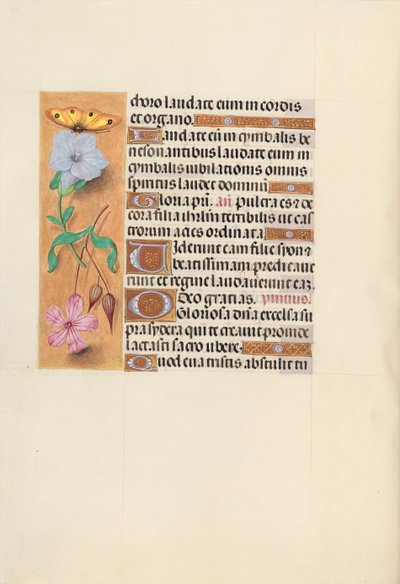 choro laudate eum in cordis
et organo.
Laudate eū in cymbalis be
nesonantibus laudate eum in
cymbalis iubilationis omnis
spiritus laudet dominū
Gloria pr̄i. añ. pulcra es ⁊ de
cora filia ihrlm̄ terribilis ut cas
trorum acies ordinata.
Uiderunt eam filie syon ⁊
beatissimam predicaue
runt et regine laudauerunt eaʒ.
Deo gratias. ymnus.
O Gloriosa dn̄a excelsa su
pra sydera qui te creauit prouide
lactasti sacro ubere.
Quod eua tristis abstulit tu